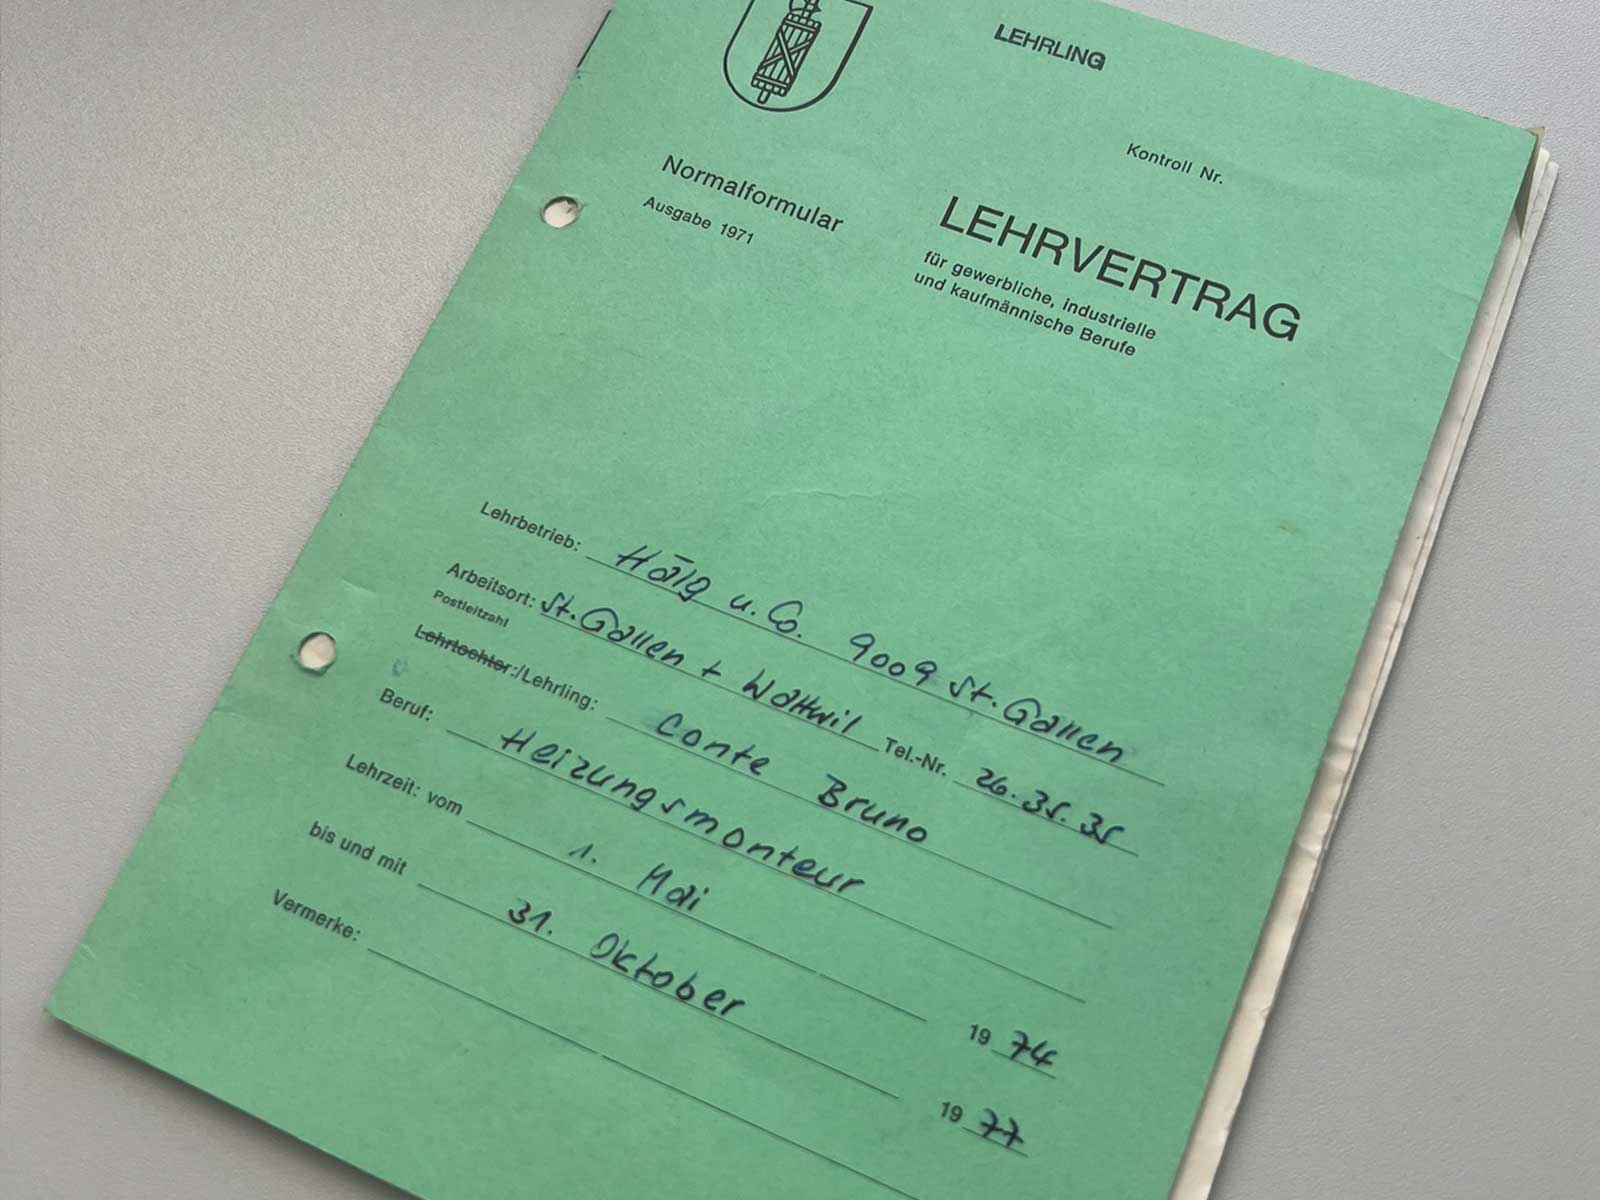 LEHRLING
Kontroll Nr.
Normalformular
Ausgabe 1971
LEHRVERTRAG
für gewerbliche, industrielle
und kaufmännische Berufe
Lehrbetrieb: Hälg u. Co. 9009 St. Gallen
Arbeitsort: St. Gallen + Wattwil Tel.-Nr. 26.35.35
Postleitzahl
Lehrtochter:/Lehrling: Conte Bruno
Beruf: Heizungsmonteur
Lehrzeit: vom 1. Mai 1974
bis und mit 31. Oktober 1977
Vermerke: